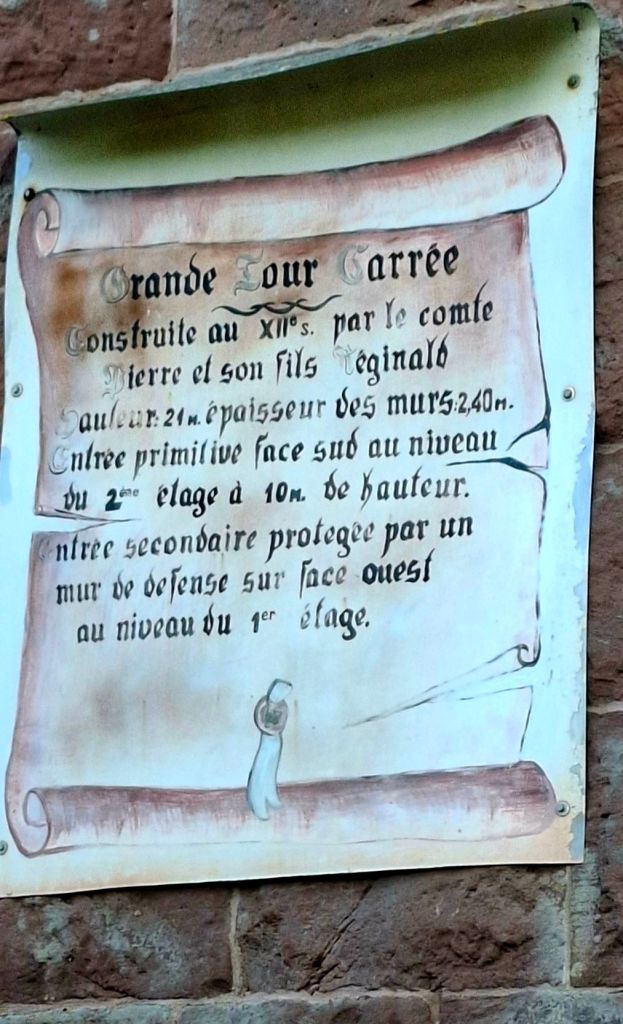 Grande Tour Carrée
Construite au XIIe s. par le comte
Pierre et son fils Réginald
Hauteur: 21 M. épaisseur des murs: 2,40 M.
Entrée primitive face sud au niveau
du 2ème étage à 10 M. de hauteur.
Entrée secondaire protegée par un
mur de defense sur face ouest
au niveau du 1er étage.